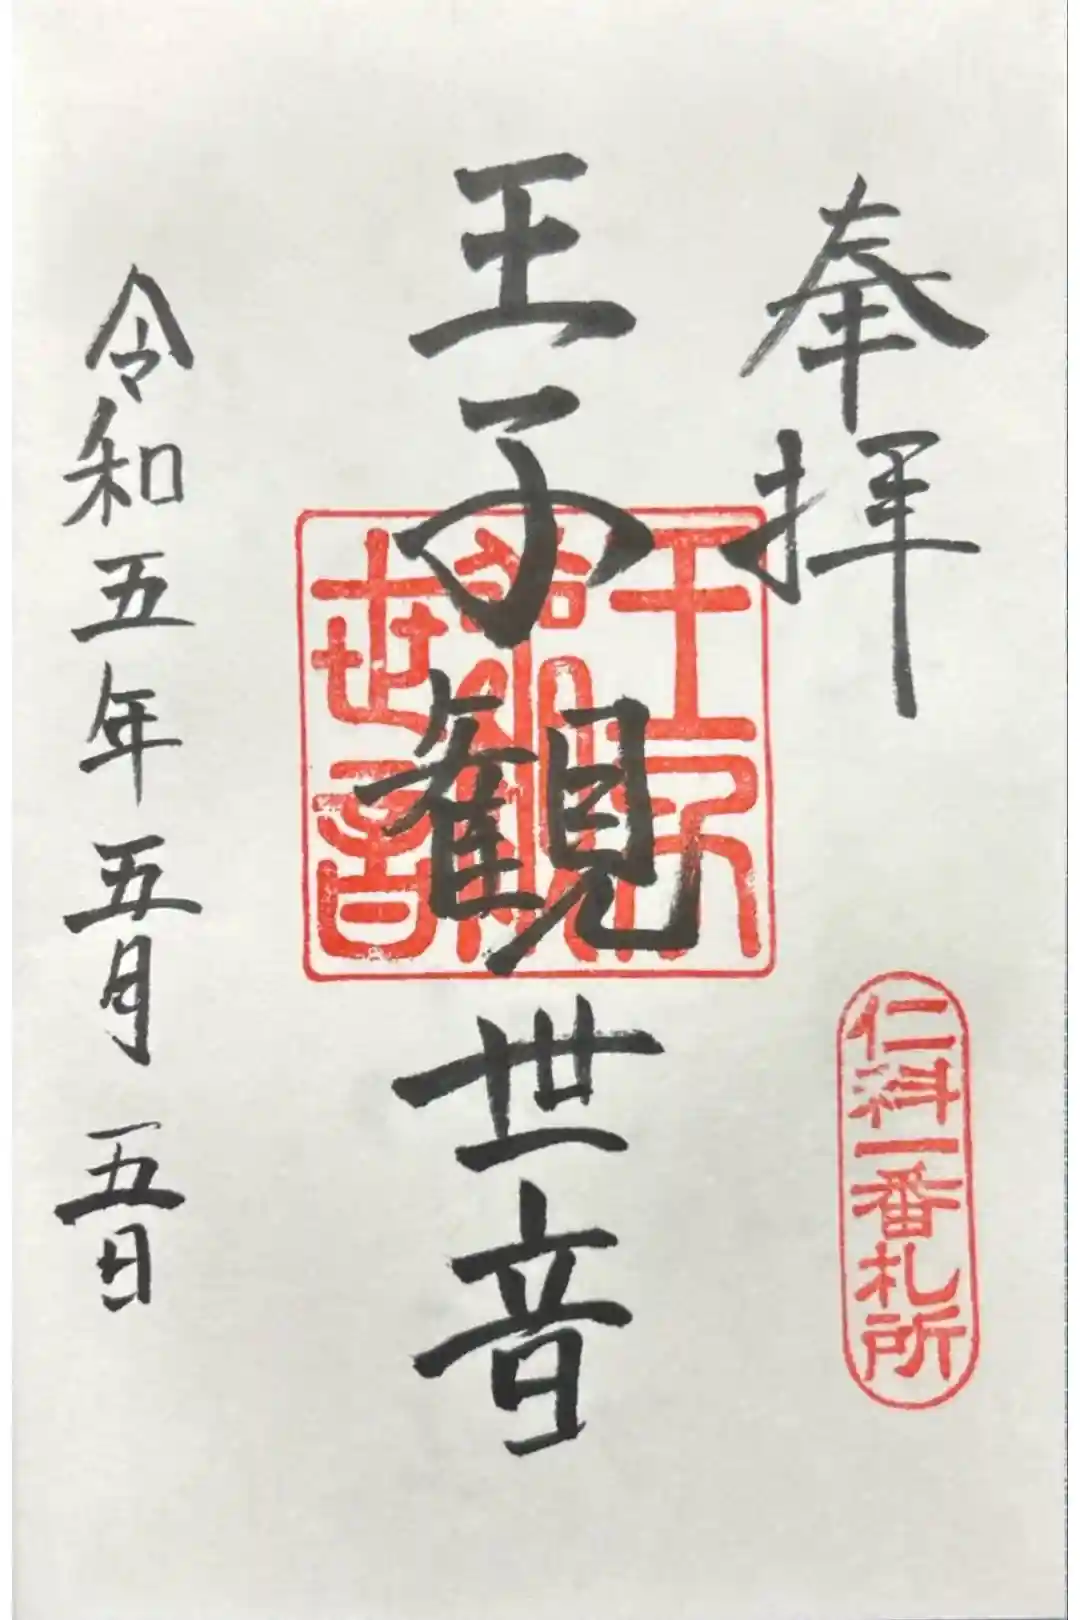 奉拝
仁科一番札所
王子観世音
王子
世音
令和五年五月五日